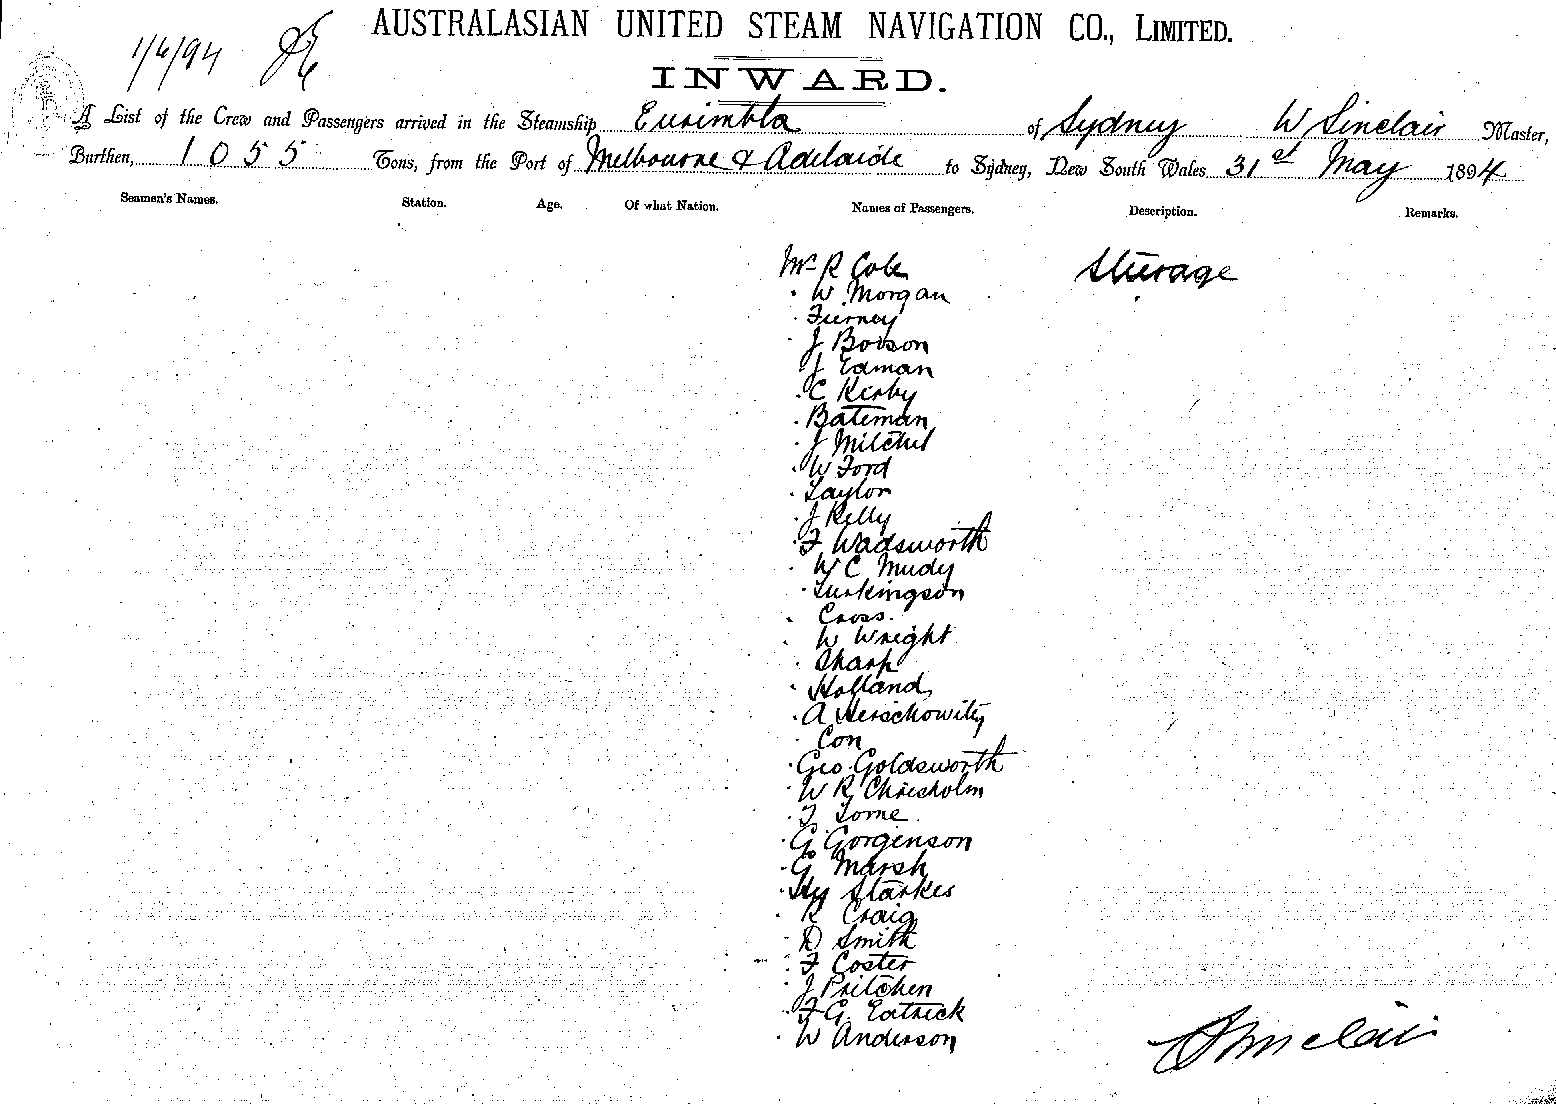 AUSTRALASIAN UNITED STEAM NAVIGATION CO., LIMITED.
1/6/94
INWARD.
A List of the Crew and Passengers arrived in the Steamship Eurimbla of Sydney W Sinclair Master,
Burthen, 1055 Tons, from the Port of Melbourne & Adelaide to Sydney, New South Wales 31st May 1894
Seamen's Names. Station. Age. Of what Nation. Names of Passengers. Description. Remarks.
Mr R Cole Steerage
" W Morgan
" Tierney
" J Bowson
" J Edman
" C Kirby
" Bateman
" J Mitchel
" W Ford
" Taylor
" J Kelly
" F Wadsworth
" W C Mudy
" Turkingson
" Cross.
" W Wright
" Sharp
" Holland
" A Herschowitz
" Con
" Geo. Goldsworth
" W R Chrisholm
" T Lorne
" G Gorgenson
" G Marsh
" Hy Starkes
" R Craig
" D Smith
" F Coster
" J Pritchen
" F G. Eatrick
" W Anderson
W Sinclair